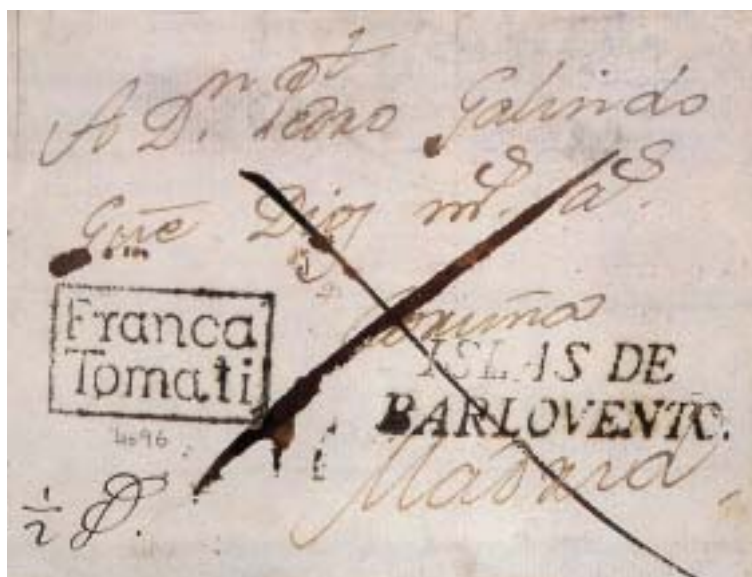 A Dn. Pedro Galindo
Gue. Dios ms. as.
Coruña
Franca
Tomati
ISLAS DE
BARLOVENTO.
4096
Madrid
1/2